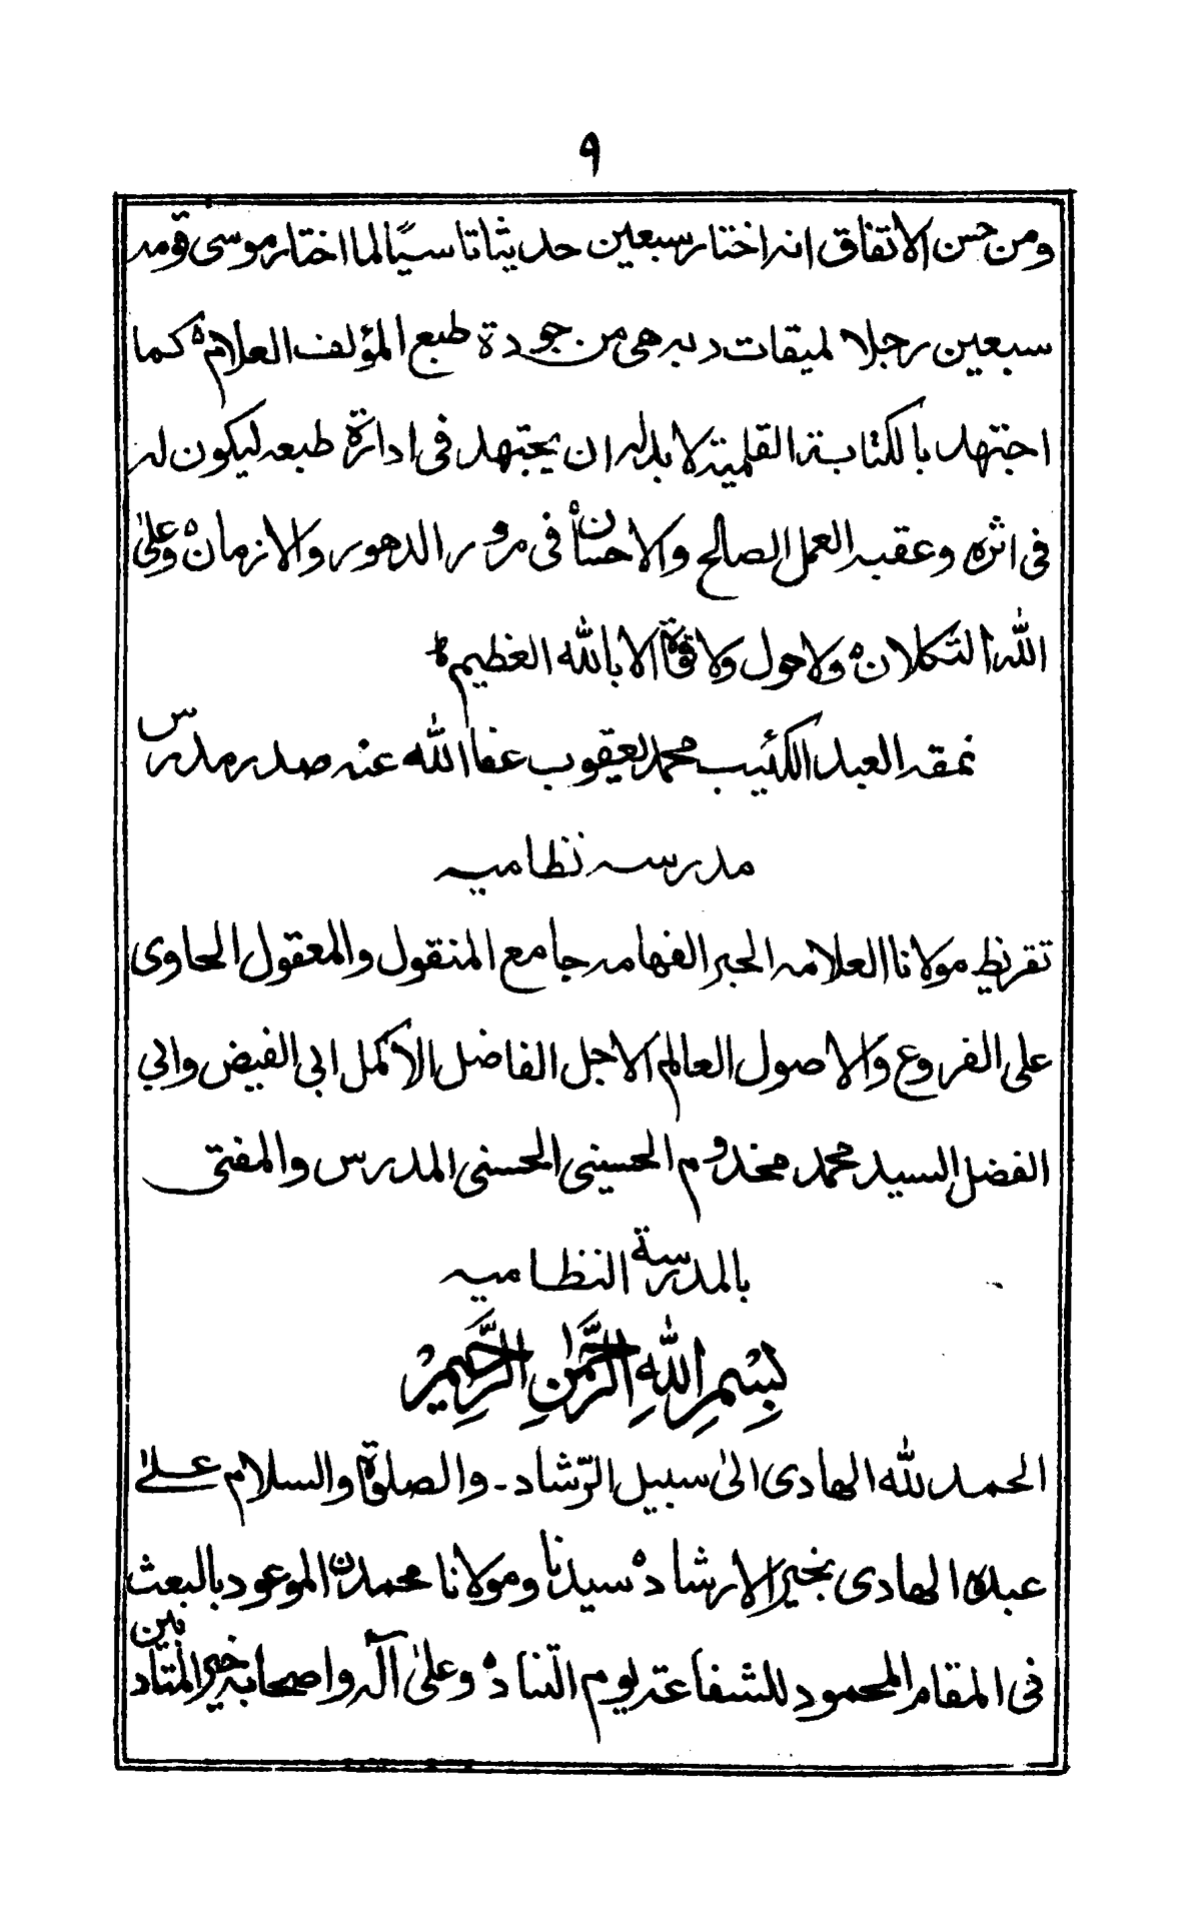 ٩
ومن حسن الاتفاق انه اختار سبعين حديثا تاسيًا لما اختار موسى قومه
سبعين رجلا لميقات ربه هى من جودة طبع المؤلف العلام ہ كما
اجتهد بالكتابة القلمية لا بد له ان يجتهد فى ادارة طبعه ليكون له
فى اثره وعقبه العمل الصالح والاحسان ہ فى مرور الدهور والازمان ہ وعلىٰ
الله التكلان ہ ولا حول ولا قوة الا بالله العظيم ہ
نمقه العبد الكئيب محمد يعقوب عفا الله عنه صدر مدرس
مدرسه نظاميه
تقريظ مولانا العلامه الحبر الفهامه جامع المنقول والمعقول الحاوى
على الفروع والاصول العالم الاجل الفاضل الأكمل ابى الفيض وابي
الفضل السيد محمد مخدوم الحسينى الحسنى المدرس والمفتى
بالمدرسة النظاميه
بِسْمِ اللهِ الرَّحْمٰنِ الرَّحِيْمِ
الحمد لله الهادى الىٰ سبيل الرّشاد ۔ والصلوٰة والسلام علىٰ
عبده الهادى بخير الارشاد ہ سيدنا ومولانا محمدن الموعود بالبعث
فى المقام المحمود للشفاعة يوم التّناد ہ وعلىٰ آله واصحابه خير المتأدبين